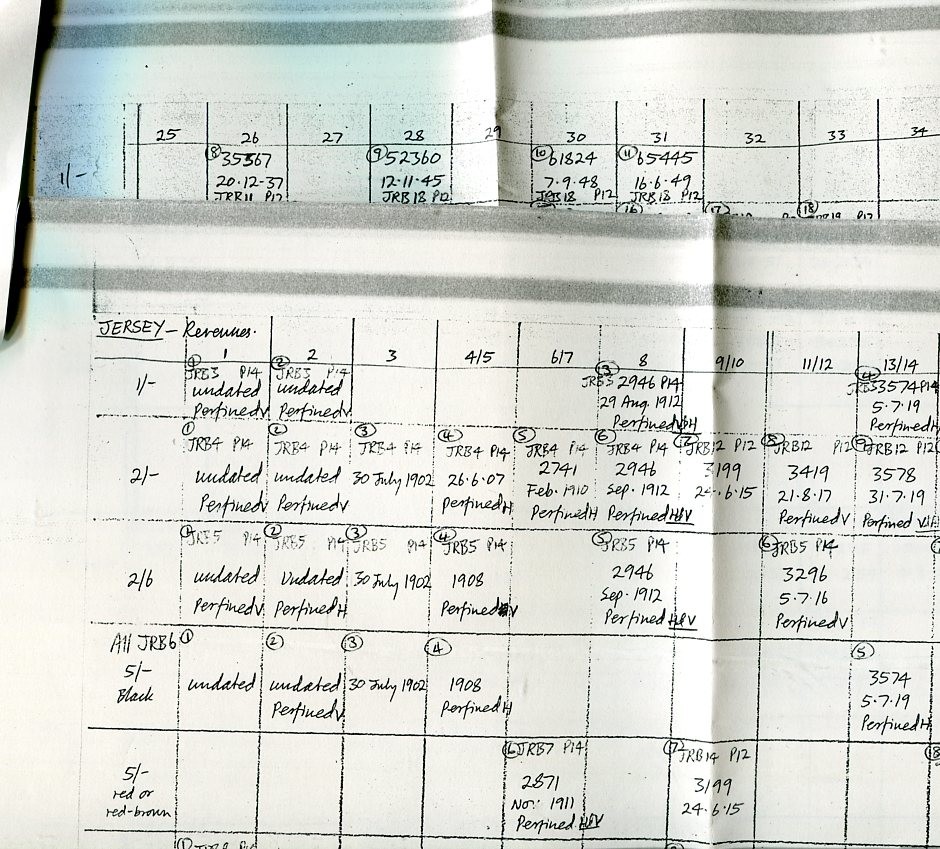 25 26 27 28 29 30 31 32 33 34
1/-
⑧ 35367 ⑨ 52360 ⑩ 61824 ⑪ 65445
20.12.37 12.11.45 7.9.48 16.6.49
JRB11 P12 JRB18 P12 JRB18 P12 JRB18 P12
⑯ ⑰ ⑱
JERSEY – Revenues.
1 2 3 4/5 6/7 8 9/10 11/12 13/14
1/-
① JRB3 P14 undated Perfined V
② JRB3 P14 undated Perfined V
③ JRB3 2946 P14
29 Aug. 1912
Perfined V&H
④ JRB3 3574 P14
5.7.19
Perfined H
2/-
① JRB4 P14
undated
Perfined V
② JRB4 P14
undated
Perfined V
③ JRB4 P14
30 July 1902
④ JRB4 P14
26.6.07
perfined H
⑤ JRB4 P14
2741
Feb. 1910
Perfined H
⑥ JRB4 P14
2946
Sep. 1912
Perfined H&V
⑦ JRB12 P12
3199
24.6.15
⑧ JRB12 P12
3419
21.8.17
Perfined V
⑨ JRB12 P12
3578
31.7.19
Perfined
2/6
① JRB5 P14
undated
Perfined V
② JRB5 P14
Undated
Perfined H
③ JRB5 P14
30 July 1902
④ JRB5 P14
1908
Perfined V
⑤ JRB5 P14
2946
Sep. 1912
Perfined H&V
⑥ JRB5 P14
3296
5.7.16
Perfined V
All JRB6
5/-
Black
①
undated
②
undated
Perfined V
③
30 July 1902
④
1908
Perfined H
⑤
3574
5.7.19
Perfined H
5/-
red or
red-brown
⑥ JRB7 P14
2871
Nov. 1911
Perfined H&V
⑦ JRB14 P12
3199
24.6.15
⑧
①